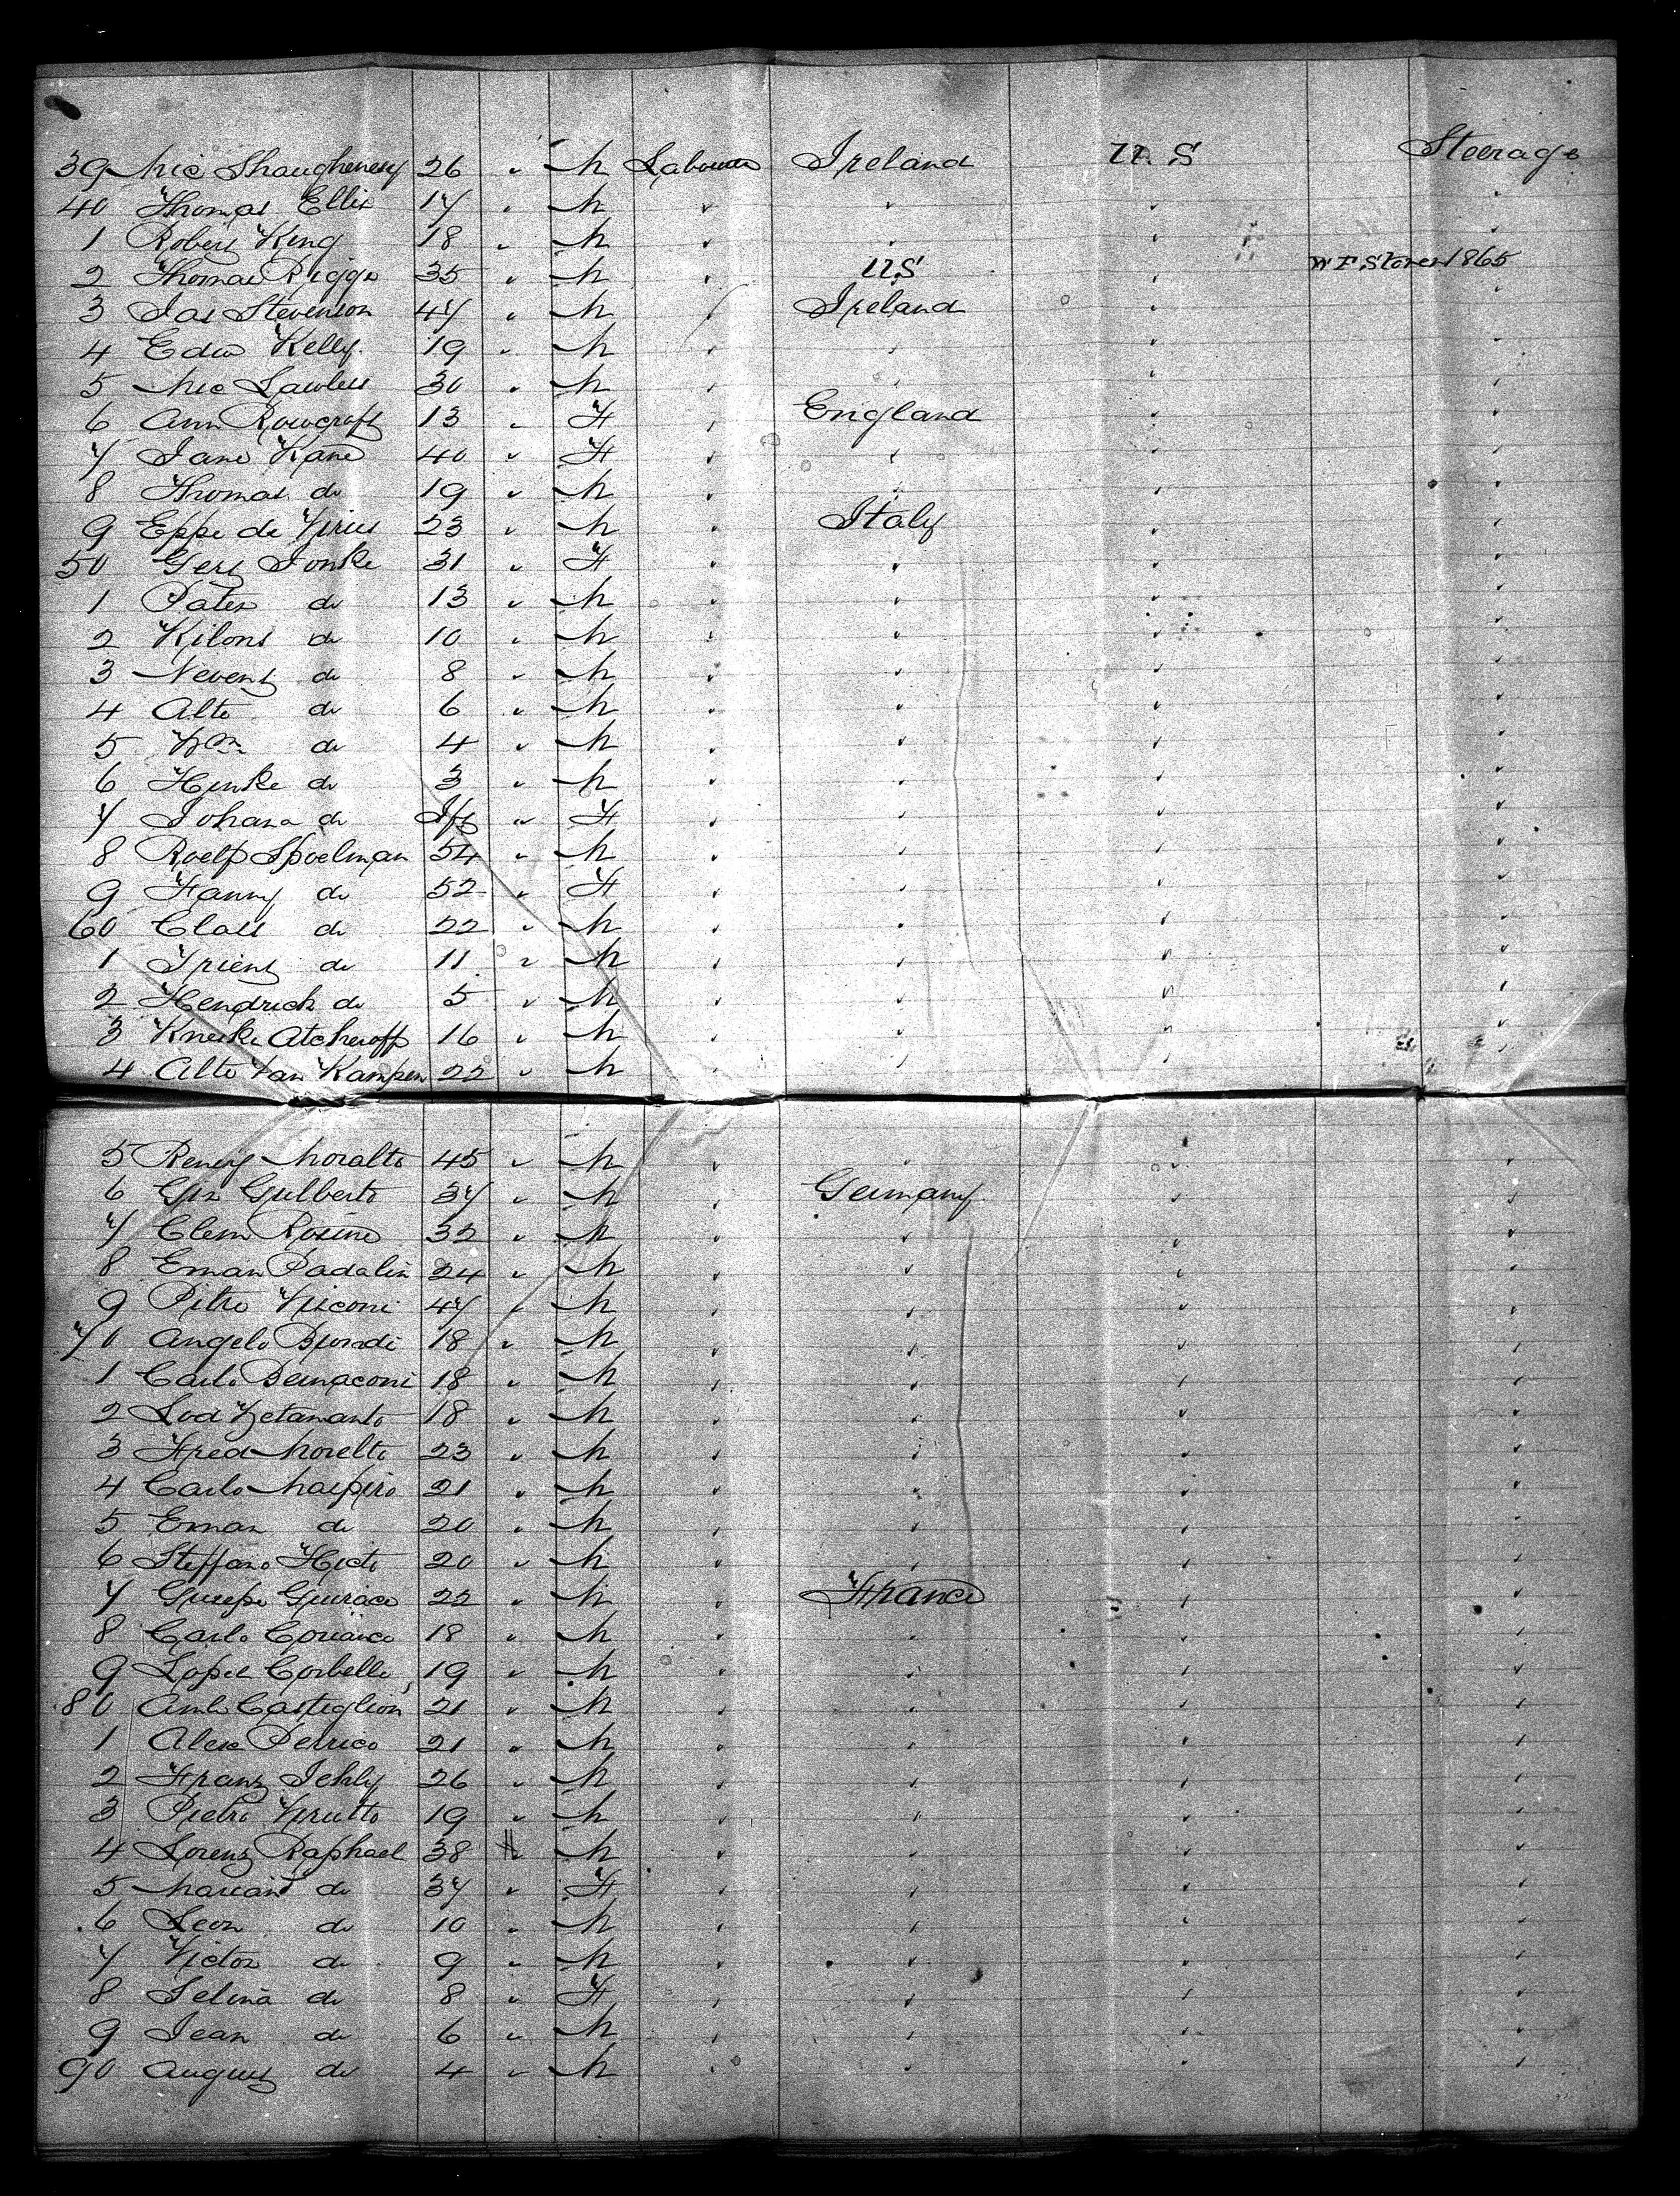 39 Mic Shaughnesy 26 " M Labourer Ireland U.S Steerage
40 Thomas Ellis 17 " M " " " "
1 Robert King 18 " M " " " "
2 Thomas Riggs 35 " M " U.S " W F Stores 1865
3 Jas Stevenson 47 " M " Ireland " "
4 Edw Kelly 19 " M " " " "
5 Mic Lawless 30 " M " " " "
6 Ann Rowcroft 13 " F " England " "
7 Jane Kane 40 " F " " " "
8 Thomas do 19 " M " " " "
9 Eppe de Vries 23 " M " Italy " "
50 Gert Jonke 31 " F " " " "
1 Pater do 13 " M " " " "
2 Kilons do 10 " M " " " "
3 Nevent do 8 " M " " " "
4 Alto do 6 " M " " " "
5 Wm do 4 " M " " " "
6 Henke do 3 " M " " " "
7 Johana do Inft " F " " " "
8 Roelf Spoelman 54 " M " " " "
9 Fanny do 52 " F " " " "
60 Class do 22 " M " " " "
1 Trient do 11 " M " " " "
2 Hendrick do 5 " M " " " "
3 Kneske Atcheroff 16 " M " " " "
4 Alto Van Kampen 22 " M " " " "
5 Remy Moralto 45 " M " " " "
6 Gulberto 37 " M " Germany " "
7 Clem Rosine 32 " M " " " "
8 Eman Padalin 24 " M " " " "
9 Pitro Visconi 47 " M " " " "
70 Angelo Biondi 18 " M " " " "
1 Carlo Bernaconi 18 " M " " " "
2 Lod Zetamanto 18 " M " " " "
3 Fred Morelto 23 " M " " " "
4 Carlo Maspiro 21 " M " " " "
5 Eman do 20 " M " " " "
6 Steffano Hicto 20 " M " " " "
7 Gusepe Guirace 22 " M " France " "
8 Carlo Corianco 18 " M " " " "
9 Lopes Corbelle 19 " M " " " "
80 Amb Castiglion 21 " M " " " "
1 Alex Perrico 21 " M " " " "
2 Franz Jehly 26 " M " " " "
3 Pietro Virutto 19 " M " " " "
4 Lorenz Raphael 38 " M " " " "
5 Mariane do 37 " F " " " "
6 Leon do 10 " M " " " "
7 Victor do 9 " M " " " "
8 Selina do 8 " F " " " "
9 Jean do 6 " M " " " "
90 August do 4 " M " " " "